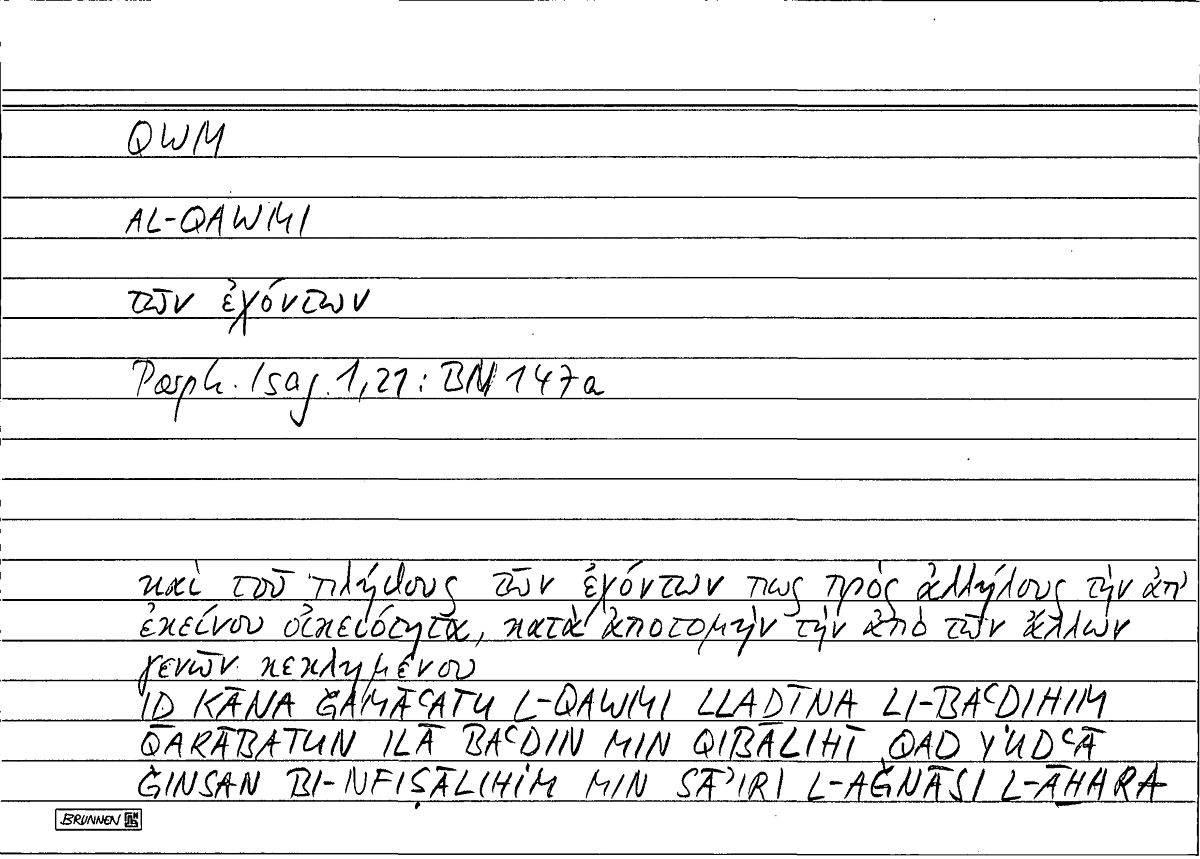 QWM
AL-QAWMI
τῶν ἐχόντων
Porph. Isag. 1,21: BN 147a
καὶ τοῦ πλήθους τῶν ἐχόντων πως πρὸς ἀλλήλους τὴν ἀπ'
ἐκείνου οἰκειότητα, κατὰ ἀποτομὴν τὴν ἀπὸ τῶν ἄλλων
γενῶν κεκλημένου
ID KĀNA ǦAMĀʿATU L-QAWMI LLADĪNA LI-BAʿDIHIM
QARĀBATUN ILĀ BAʿDIN MIN QIBĀLIHĪ QAD YUDʿĀ
ǦINSAN BI-NFIṢĀLIHIM MIN SĀʾIRI L-AǦNĀSI L-ĀḪARA
BRUNNEN